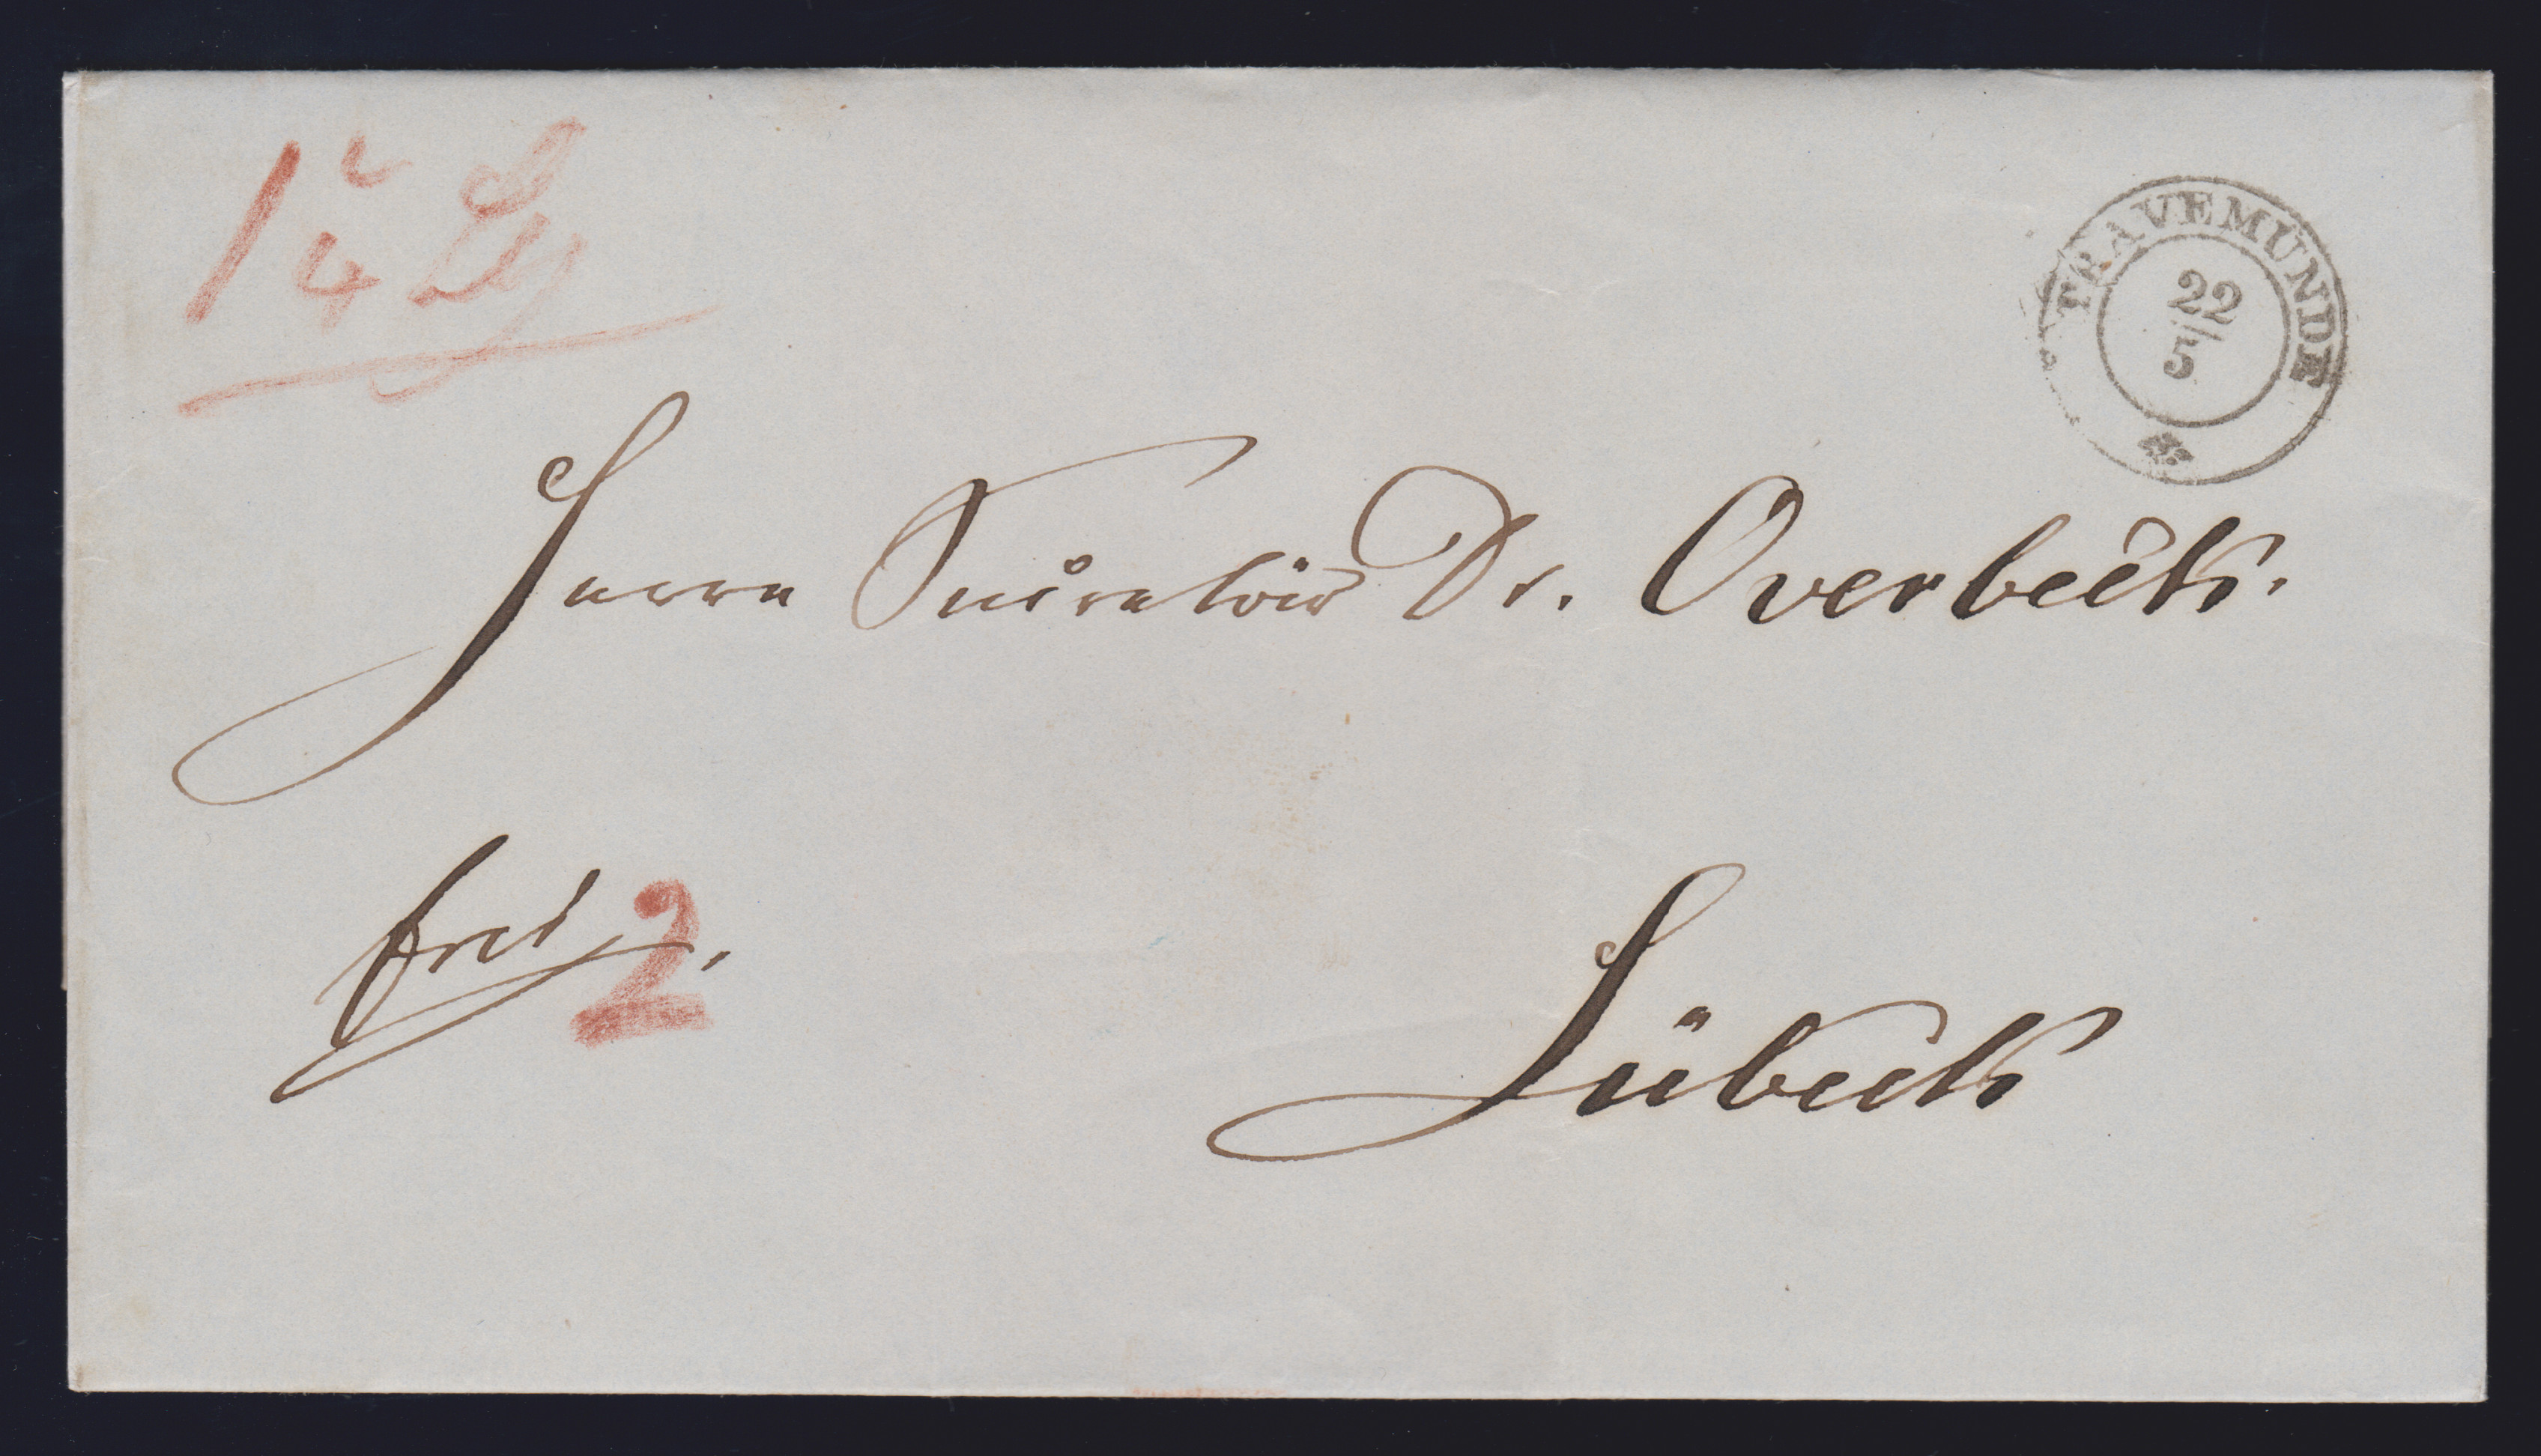 1 1/4 Lt
TRAVEMÜNDE
22
5
Herrn Secretair Dr. Overbeck.
frei.
2
Lübeck